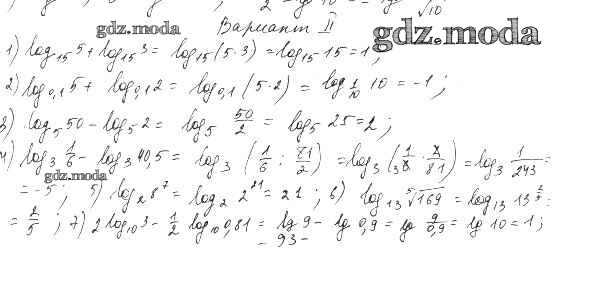 √10
gdz.moda Вариант II gdz.moda
1) log₁₅ 5 + log₁₅ 3 = log₁₅ (5·3) = log₁₅ 15 = 1;
2) log₀,₁ 5 + log₀,₁ 2 = log₀,₁ (5·2) = log_{1/10} 10 = -1;
3) log₅ 50 - log₅ 2 = log₅ 50/2 = log₅ 25 = 2;
4) log₃ 1/6 - log₃ 40,5 = log₃ (1/6 : 81/2) = log₃ (1/6 · 2/81) = log₃ 1/243 =
gdz.moda
= -5; 5) log₂ 8⁷ = log₂ 2²¹ = 21; 6) log₁₃ ⁵√169 = log₁₃ 13^{2/5} =
= 2/5; 7) 2 log₁₀ 3 - 1/2 log₁₀ 0,81 = lg 9 - lg 0,9 = lg 9/0,9 = lg 10 = 1;
- 93 -